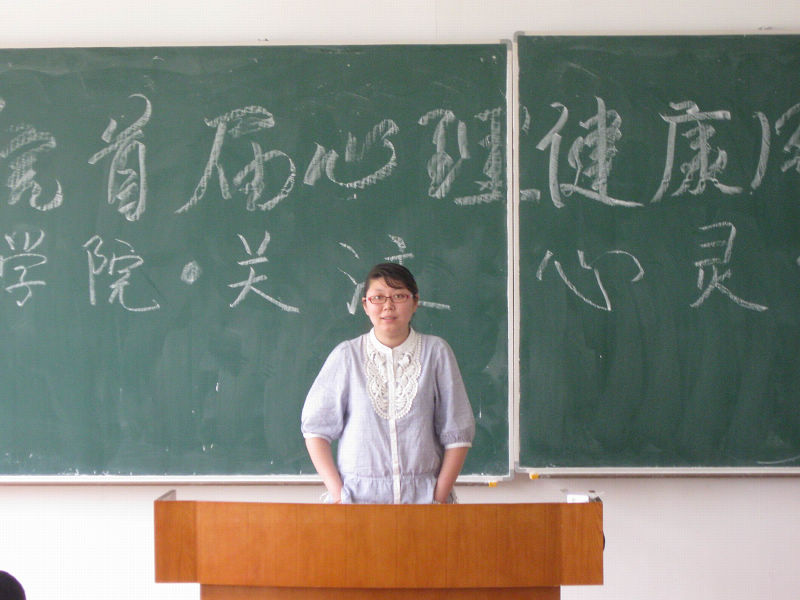 院首届心理健康
学院·关注心灵